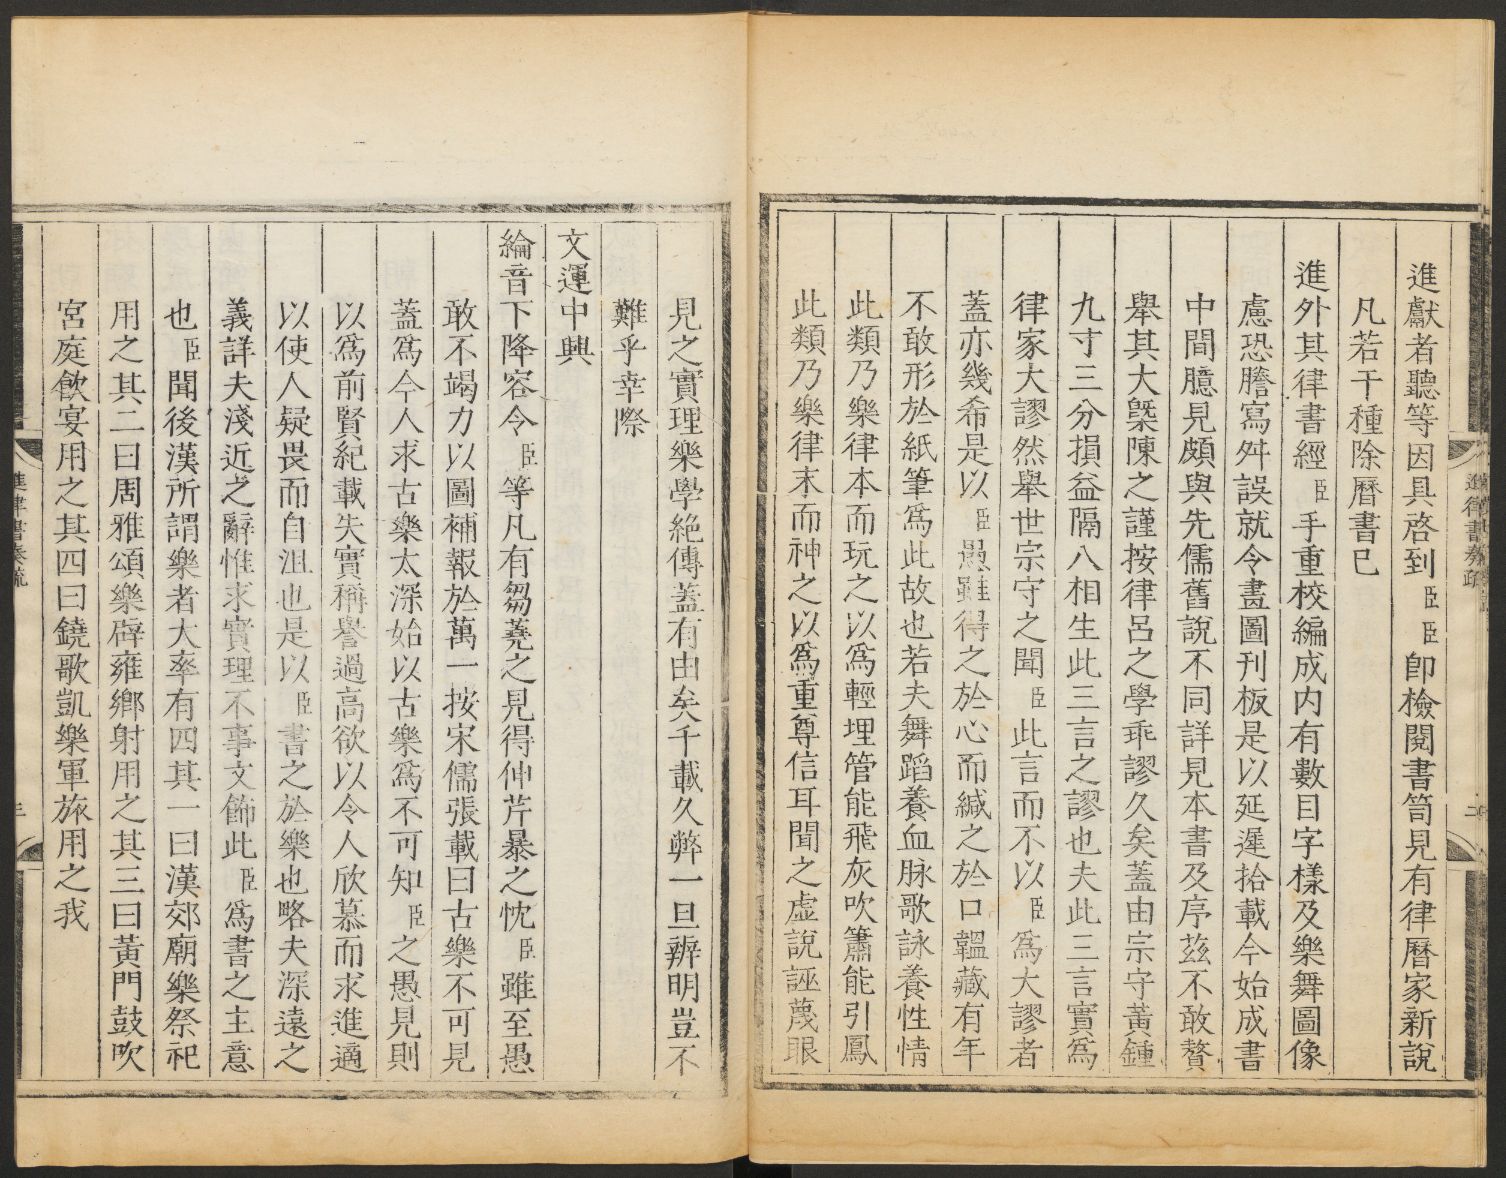 進獻者聽等因具啓到臣臣卽檢閱書笥見有律曆家新說
凡若干種除曆書已
進外其律書經臣手重校編成內有數目字樣及樂舞圖像
慮恐謄寫舛誤就令畫圖刊板是以延遲拾載今始成書
中間臆見頗與先儒舊說不同詳見本書及序茲不敢贅
舉其大槩陳之謹按律呂之學乖謬久矣蓋由宗守黃鍾
九寸三分損益隔八相生此三言之謬也夫此三言實爲
律家大謬然舉世宗守之聞臣此言而不以臣爲大謬者
蓋亦幾希是以臣愚雖得之於心而緘之於口韞藏有年
不敢形於紙筆爲此故也若夫舞蹈養血脉歌詠養性情
此類乃樂律本而玩之以爲輕埋管能飛灰吹簫能引鳳
此類乃樂律末而神之以爲重尊信耳聞之虛說誣蔑眼
進律書奏疏
二
見之實理樂學絶傳蓋有由矣千載久弊一旦辨明豈不
難乎幸際
文運中興
綸音下降容令臣等凡有芻蕘之見得伸芹暴之忱臣雖至愚
敢不竭力以圖補報於萬一按宋儒張載曰古樂不可見
蓋爲今人求古樂太深始以古樂爲不可知臣之愚見則
以爲前賢紀載失實稱譽過高欲以令人欣慕而求進適
以使人疑畏而自沮也是以臣書之於樂也略夫深遠之
義詳夫淺近之辭惟求實理不事文飾此臣爲書之主意
也臣聞後漢所謂樂者大率有四其一曰漢郊廟樂祭祀
用之其二曰周雅頌樂辟雍鄉射用之其三曰黃門鼓吹
宮庭飮宴用之其四曰鐃歌凱樂軍旅用之我
進律書奏疏
三